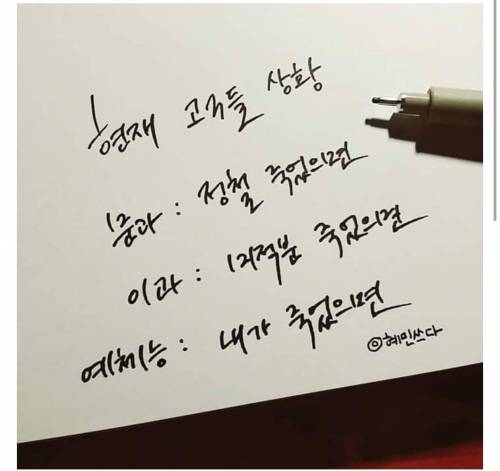 현재 고3들 상황
문과 : 정철 죽었으면
이과 : 미적분 죽었으면
예체능 : 내가 죽었으면
©혜민쓰다